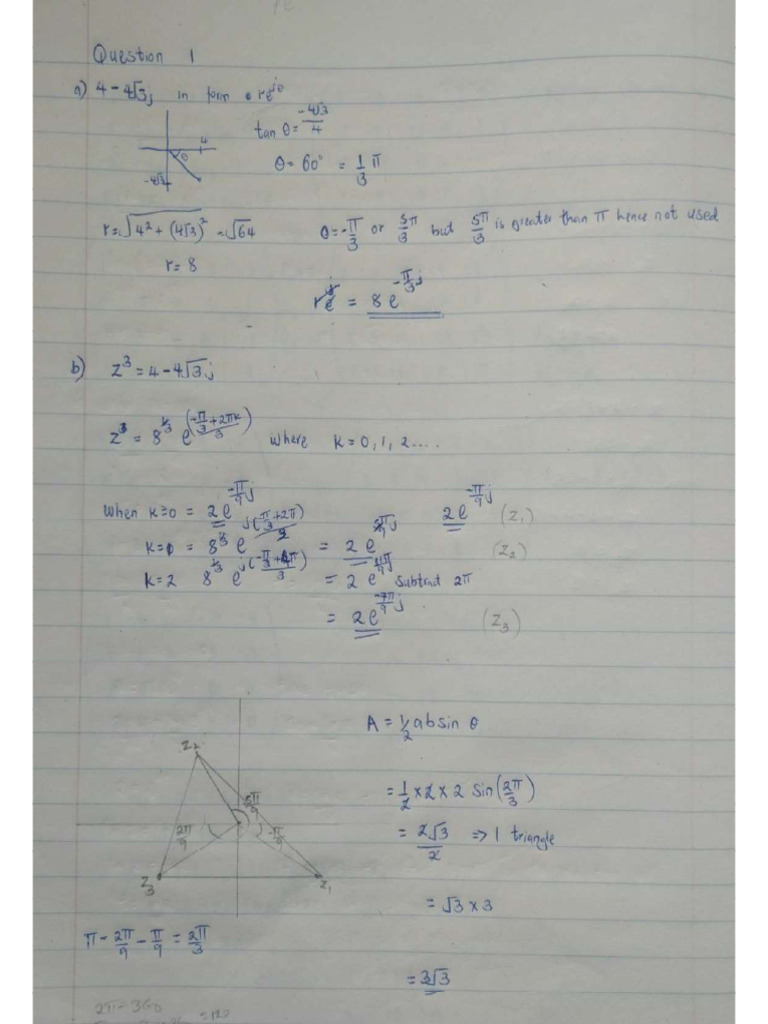 Question 1
a) 4 - 4√3j in form re^jθ
tan θ = -4√3/4
4
θ
-4√3
θ = 60° = 1/3 π
r = √(4² + (4√3)²) = √64
θ = -π/3 or 5π/3 but 5π/3 is greater than π hence not used
r = 8
= 8e^(-π/3 j)
b) z³ = 4 - 4√3j
z = 8^(1/3) e^((-π/3 + 2πk)/3) where k = 0, 1, 2 ....
When k=0 = 2e^(-π/9 j) 2e^(-π/9 j) (z₁)
= 8^(1/3) e^(j(-π/3 + 2π)/3) = 2e^(5π/9 j) (z₂)
k=2 8^(1/3) e^(j(-π/3 + 4π)/3) = 2e^(11π/9 j) Subtract 2π
= 2e^(-7π/9 j) (z₃)
A = ½ absin θ
z₂
5π/9
= ½ × 2 × 2 sin(2π/3)
2π/9
-π/9
= 2√3/2 => 1 triangle
z₃
z₁
= √3 × 3
π - 2π/9 - π/9 = 2π/3
= 3√3
2π = 360
= 120